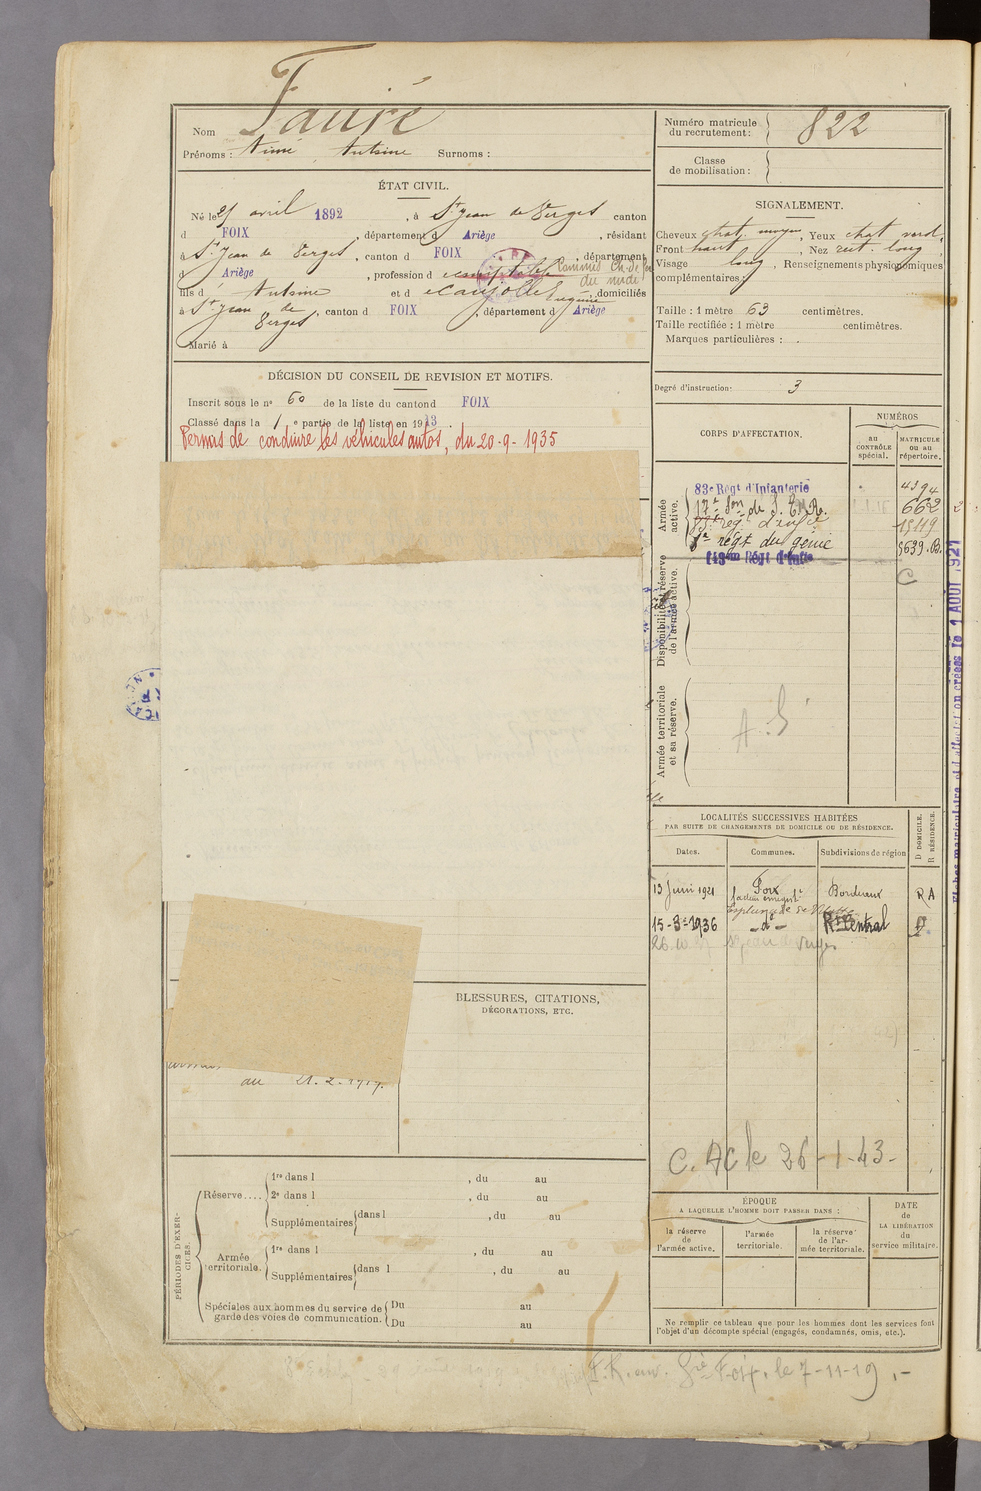 Nom Fauré
Prénoms : Aimé Antoine Surnoms :
ÉTAT CIVIL.
Né le 25 avril 1892, à St Jean de Verges canton
d FOIX, département d Ariège, résidant
à St Jean de Verges, canton d FOIX, département
d Ariège, profession d comptable Commis Ch. de fer
du midi
fils d Antoine et d Eugénie, domiciliés
à St Jean de Verges, canton d FOIX, département d Ariège
Marié à
DÉCISION DU CONSEIL DE REVISION ET MOTIFS.
Inscrit sous le no 60 de la liste du canton d FOIX
Classé dans la 1 e partie de la liste en 1913.
Permis de conduire les véhicules autos, du 20-9-1935
au 21.2.1919.
BLESSURES, CITATIONS,
DÉCORATIONS, ETC.
PÉRIODES D'EXER-
CICES.
Réserve....
1re dans l , du au
2e dans l , du au
Supplémentaires dans l , du au
Armée
territoriale.
1re dans l , du au
Supplémentaires dans l , du au
Spéciales aux hommes du service de
garde des voies de communication.
Du au
Du au
Numéro matricule
du recrutement : 822
Classe
de mobilisation :
SIGNALEMENT.
Cheveux chat. moyen, Yeux chat verd.
Front haut, Nez rect. long
Visage long, Renseignements physionomiques
complémentaires :
Taille : 1 mètre 63 centimètres.
Taille rectifiée : 1 mètre centimètres.
Marques particulières :
Degré d'instruction : 3
CORPS D'AFFECTATION.
NUMÉROS
au
CONTRÔLE
spécial.
MATRICULE
ou au
répertoire.
Armée
active.
83e Régt d'Infanterie 4394
17e Son de S. E.M.R. 662
régt d'infie 1549
1er régt du génie 5639.B.
143em Régt d'Infie
Disponibilité et réserve
de l'armée active.
C
Armée territoriale
et sa réserve.
A.S
LOCALITÉS SUCCESSIVES HABITÉES
PAR SUITE DE CHANGEMENTS DE DOMICILE OU DE RÉSIDENCE.
Dates. Communes. Subdivisions de région
D DOMICILE.
R RÉSIDENCE.
13 Juin 1921 Foix Bordeaux RA
Esplanade de Villote
15-3-1936 -do- Rt Central
St Jean de Verges
C. AC le 26-1-43-
ÉPOQUE
A LAQUELLE L'HOMME DOIT PASSER DANS :
la réserve
de
l'armée active.
l'armée
territoriale.
la réserve
de l'ar-
mée territoriale.
DATE
de
LA LIBÉRATION
du
service militaire.
Ne remplir ce tableau que pour les hommes dont les services font
l'objet d'un décompte spécial (engagés, condamnés, omis, etc.).
Foix, le 7-11-19.-
Fiches matriculaire et d'affectation créées le 1 AOUT 1921